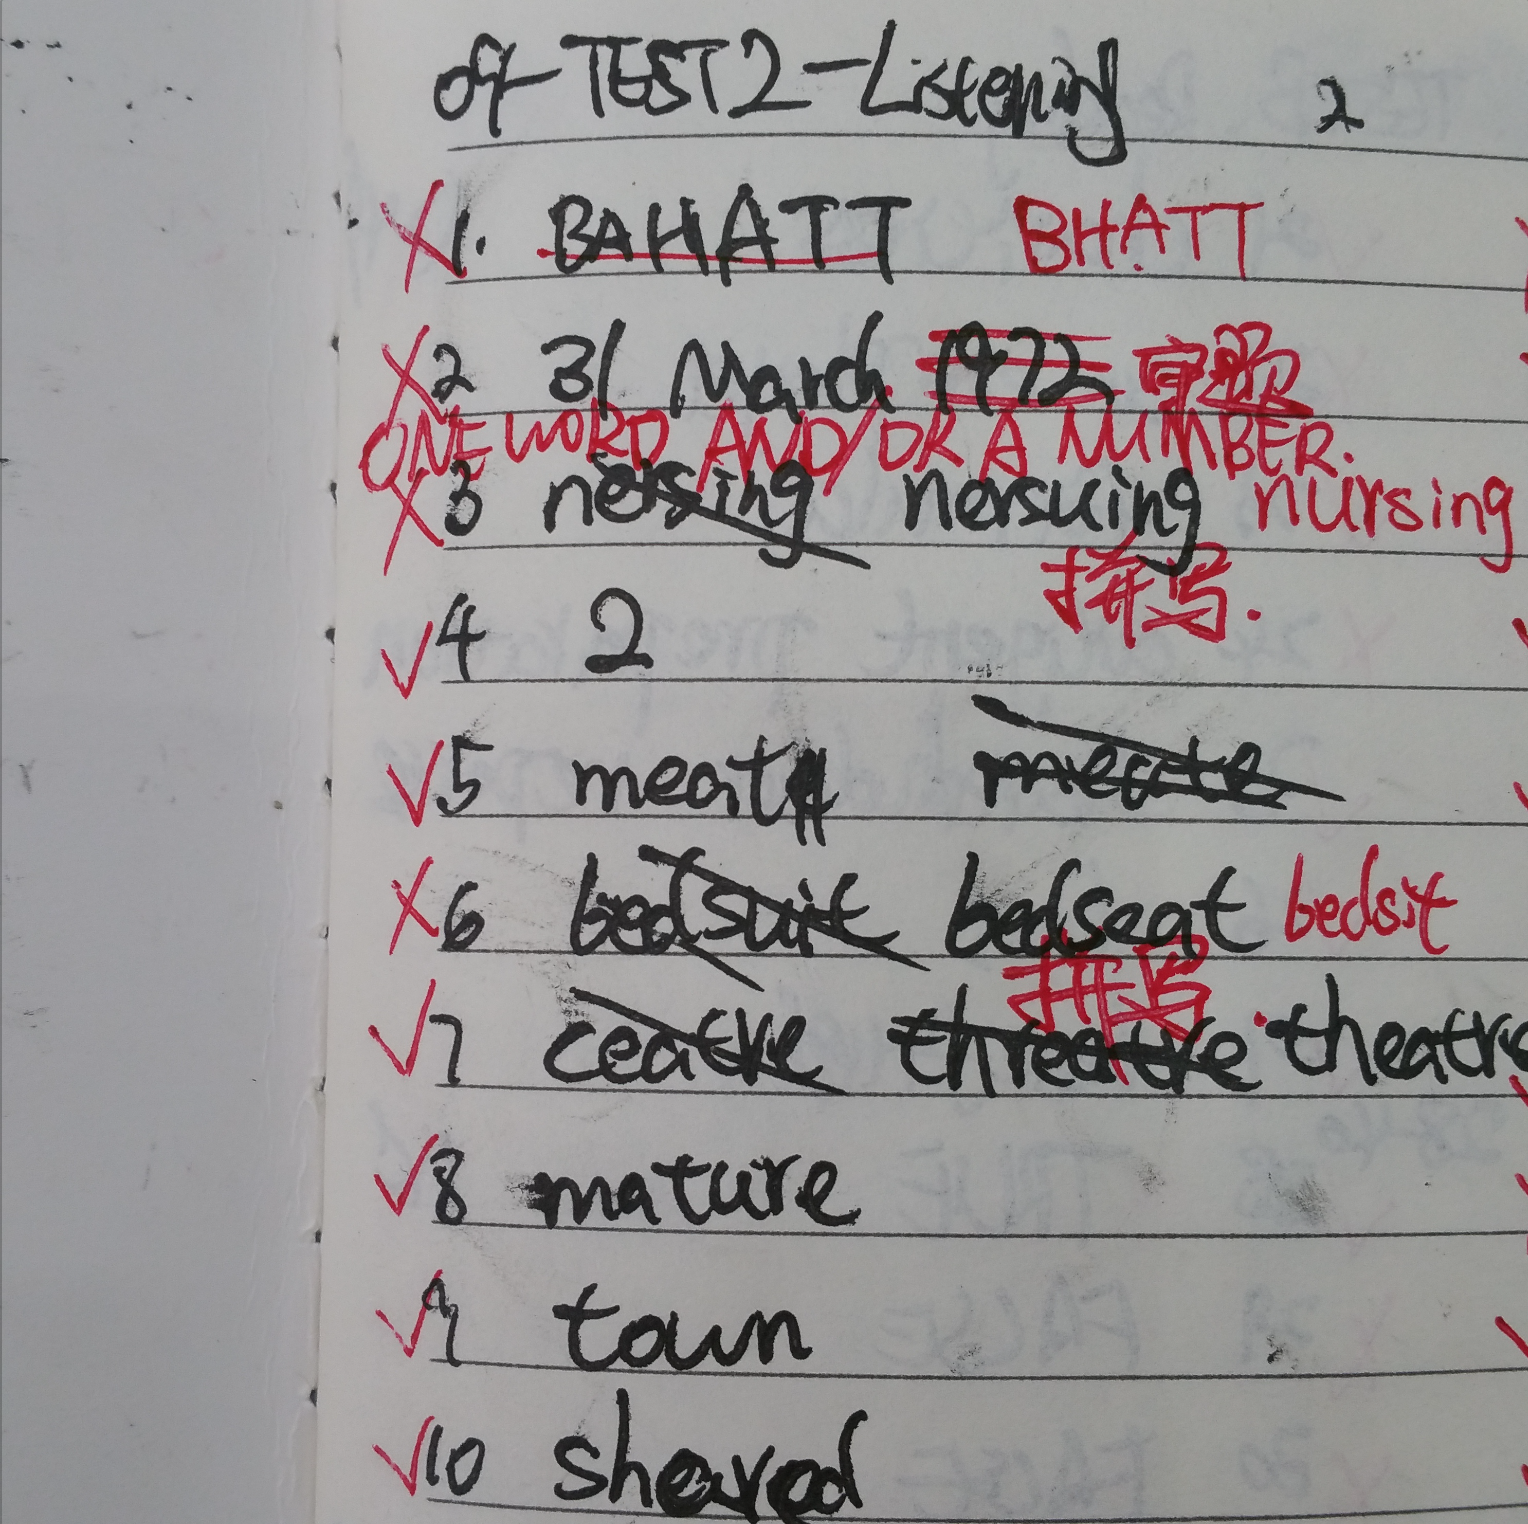 09-TEST2-Listening 2
1. BAHATT BHATT
2 31 March 1972 审题
ONE WORD AND/OR A NUMBER.
3 nersing nersuing nursing
拼写.
4 2
5 meat meate
6 bedsuit bedseat bedsit
拼写.
7 ceatre threatre theatre
8 mature
9 town
10 shared